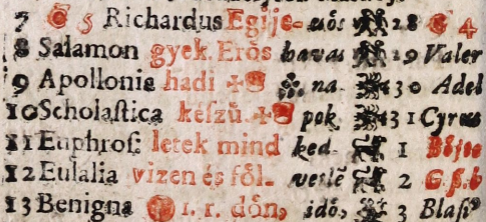 7 5 Richardus Egije- uôs 28 4
8 Salamon gyek. Erôs havas 19 Valer
9 Apollonia hadi na- 30 Adel
10 Scholaſtica keſzû pok. 31 Cyrus
11 Euphroſ: letek mind ked- 1
12 Eulalia vizen és fôl- 2 G. b. b
13 Benigna 1. r. dôn, idô, 3 Blaſi⁹